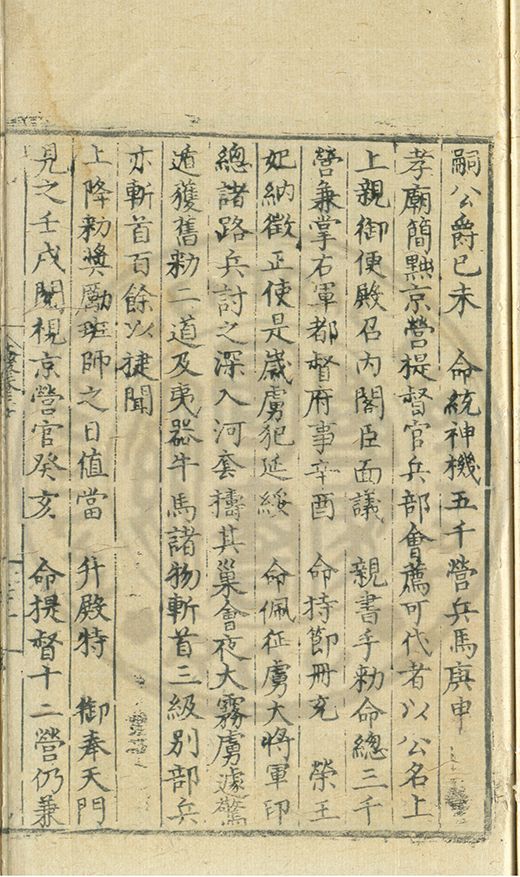 嗣公爵己未　命統神機五千營兵馬庚申
孝廟簡點京營提督官兵部會薦可代者以公名上
上親御便殿召內閣臣面議　親書手勑命總三千
營兼掌右軍都督府事辛酉　命持節冊充　榮王
妃納徵正使是歲虜犯延綏　命佩征虜大將軍印
總諸路兵討之深入河套擣其巢會夜大霧虜遽驚
遁獲舊勑二道及夷器牛馬諸物斬首三級別部兵
亦斬首百餘以捷聞
上降勑獎勵班師之日值當　升殿特　御奉天門
見之壬戌閱視京營官癸亥　命提督十二營仍兼